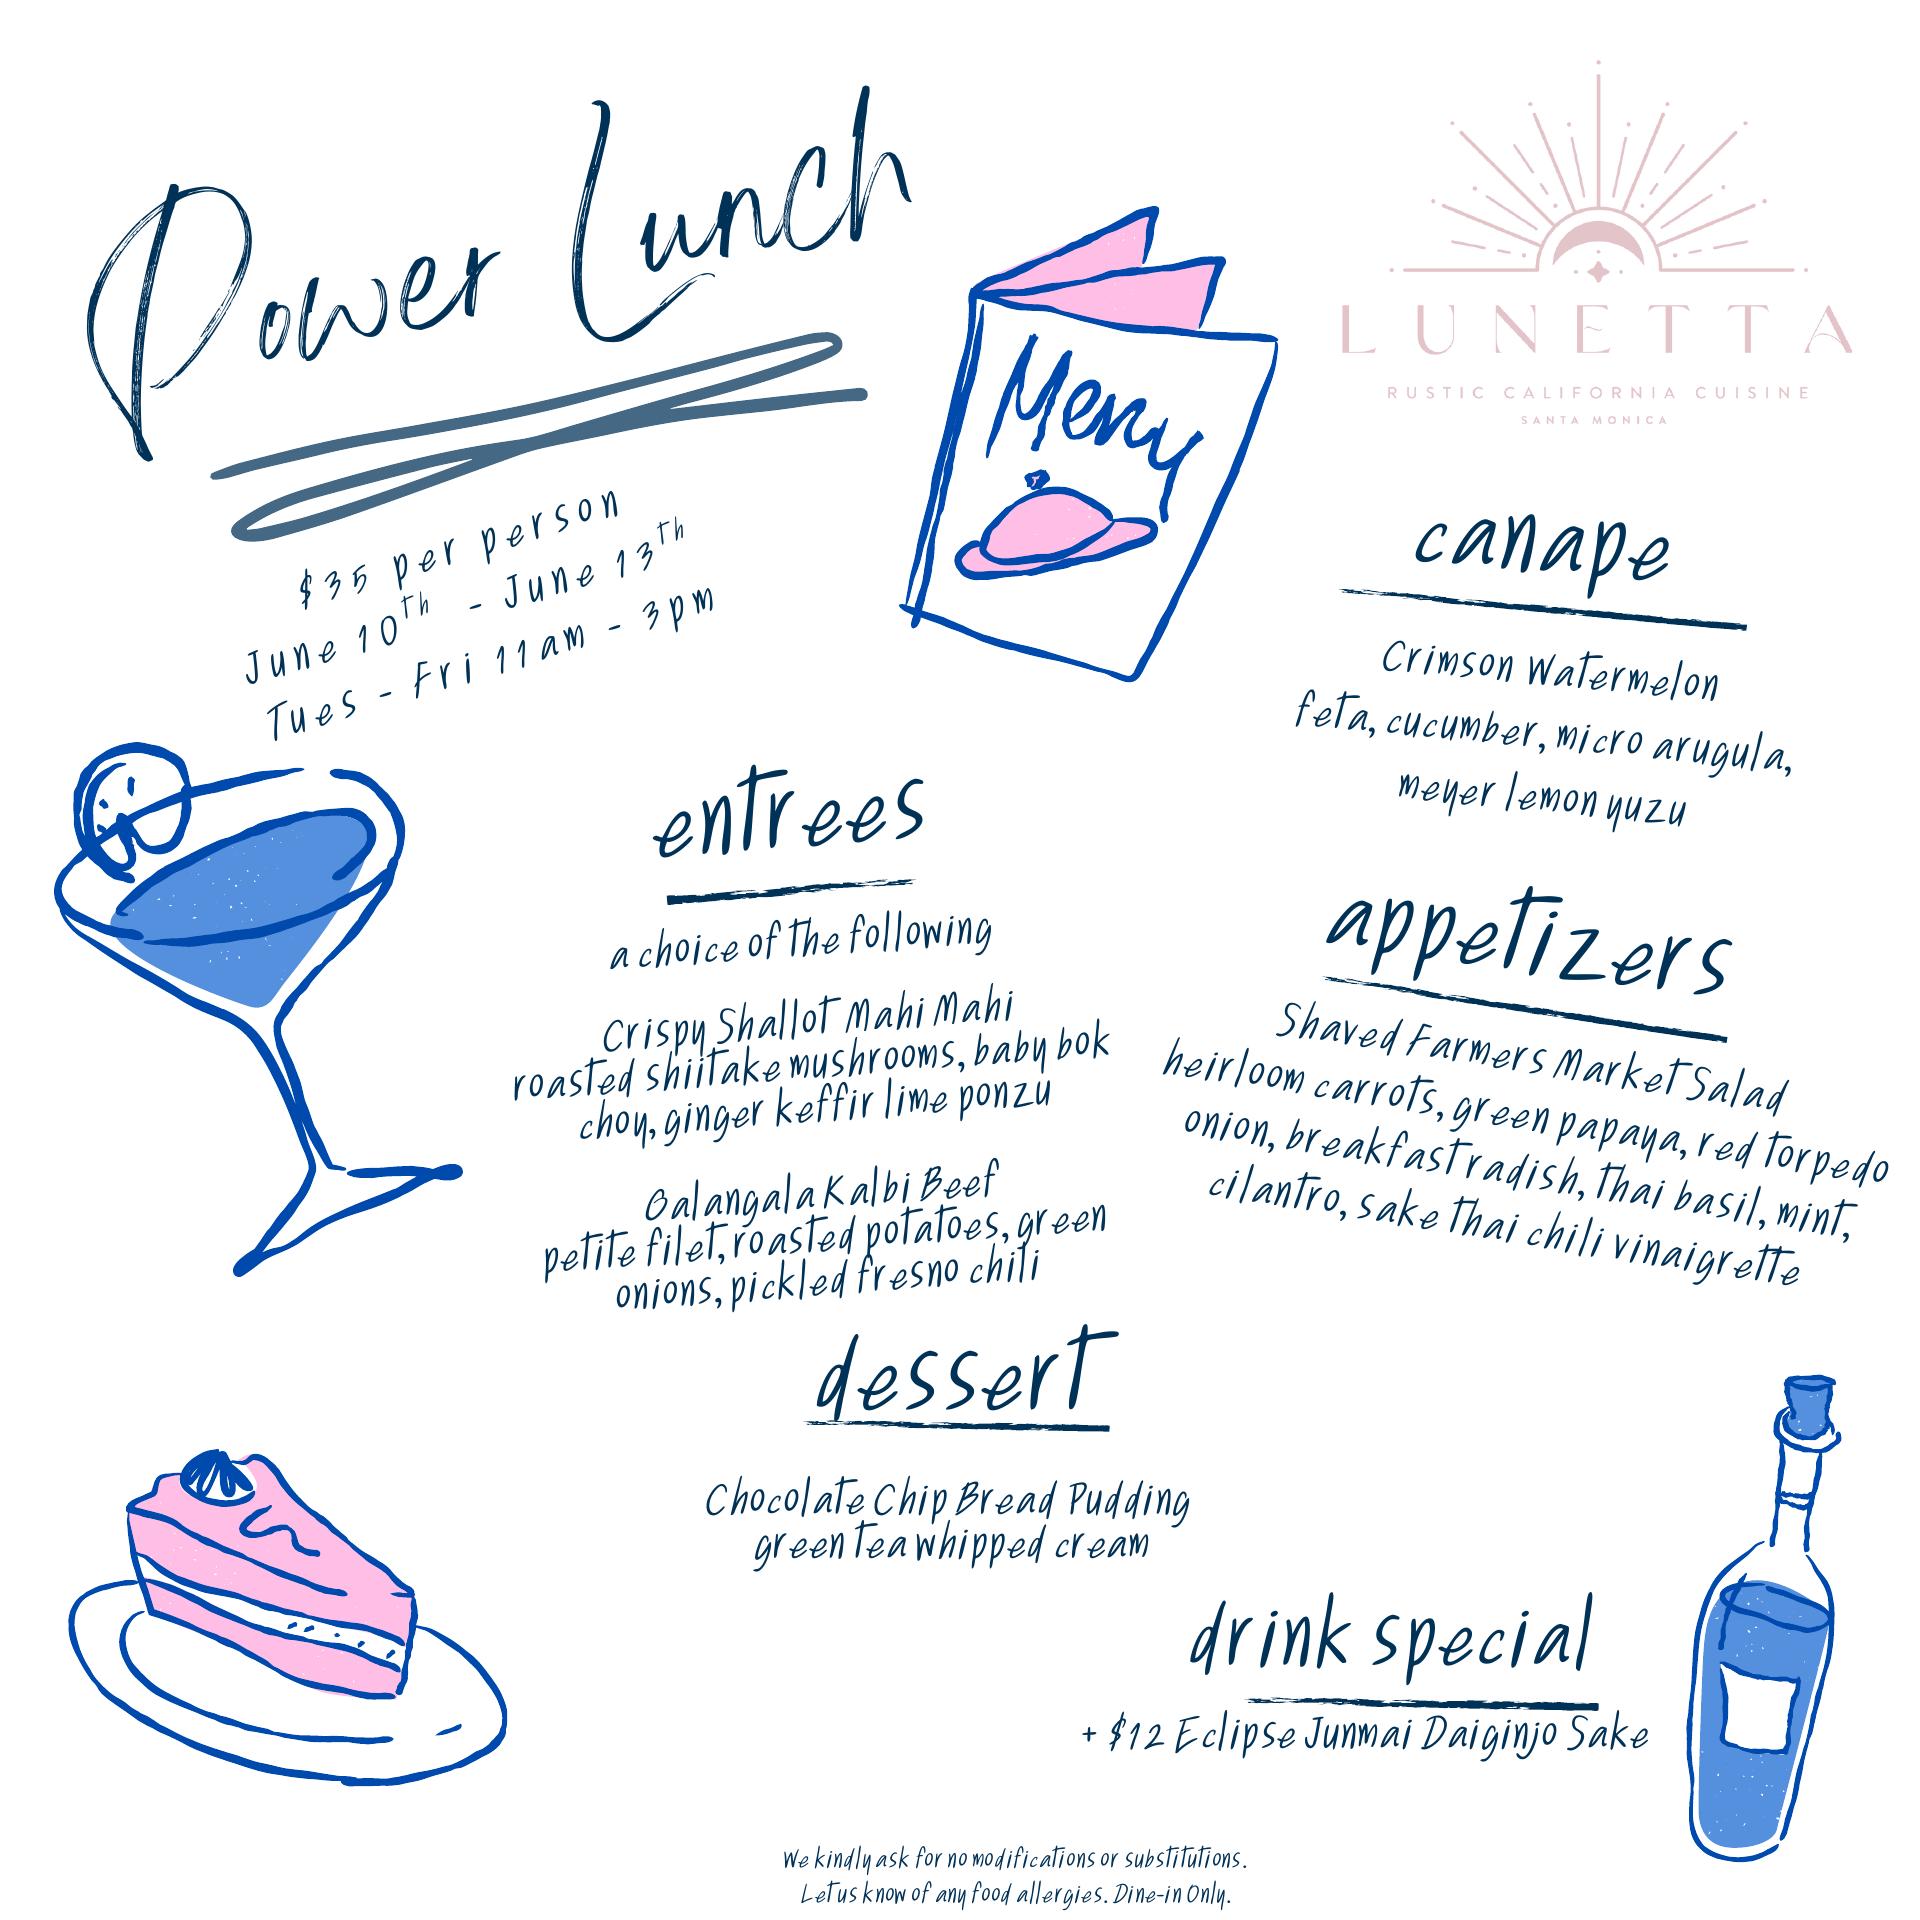 Power Lunch
$35 per person
June 10th - June 13th
Tues - Fri 11am - 3pm
Menu
LUNETTA
RUSTIC CALIFORNIA CUISINE
SANTA MONICA
canape
Crimson Watermelon
feta, cucumber, micro arugula,
meyer lemon yuzu
appetizers
Shaved Farmers Market Salad
heirloom carrots, green papaya, red torpedo
onion, breakfast radish, thai basil, mint,
cilantro, sake thai chili vinaigrette
entrees
a choice of the following
Crispy Shallot Mahi Mahi
roasted shiitake mushrooms, baby bok
choy, ginger keffir lime ponzu
Galangala Kalbi Beef
petite filet, roasted potatoes, green
onions, pickled fresno chili
dessert
Chocolate Chip Bread Pudding
green tea whipped cream
drink special
+ $12 Eclipse Junmai Daiginjo Sake
We kindly ask for no modifications or substitutions.
Let us know of any food allergies. Dine-in Only.